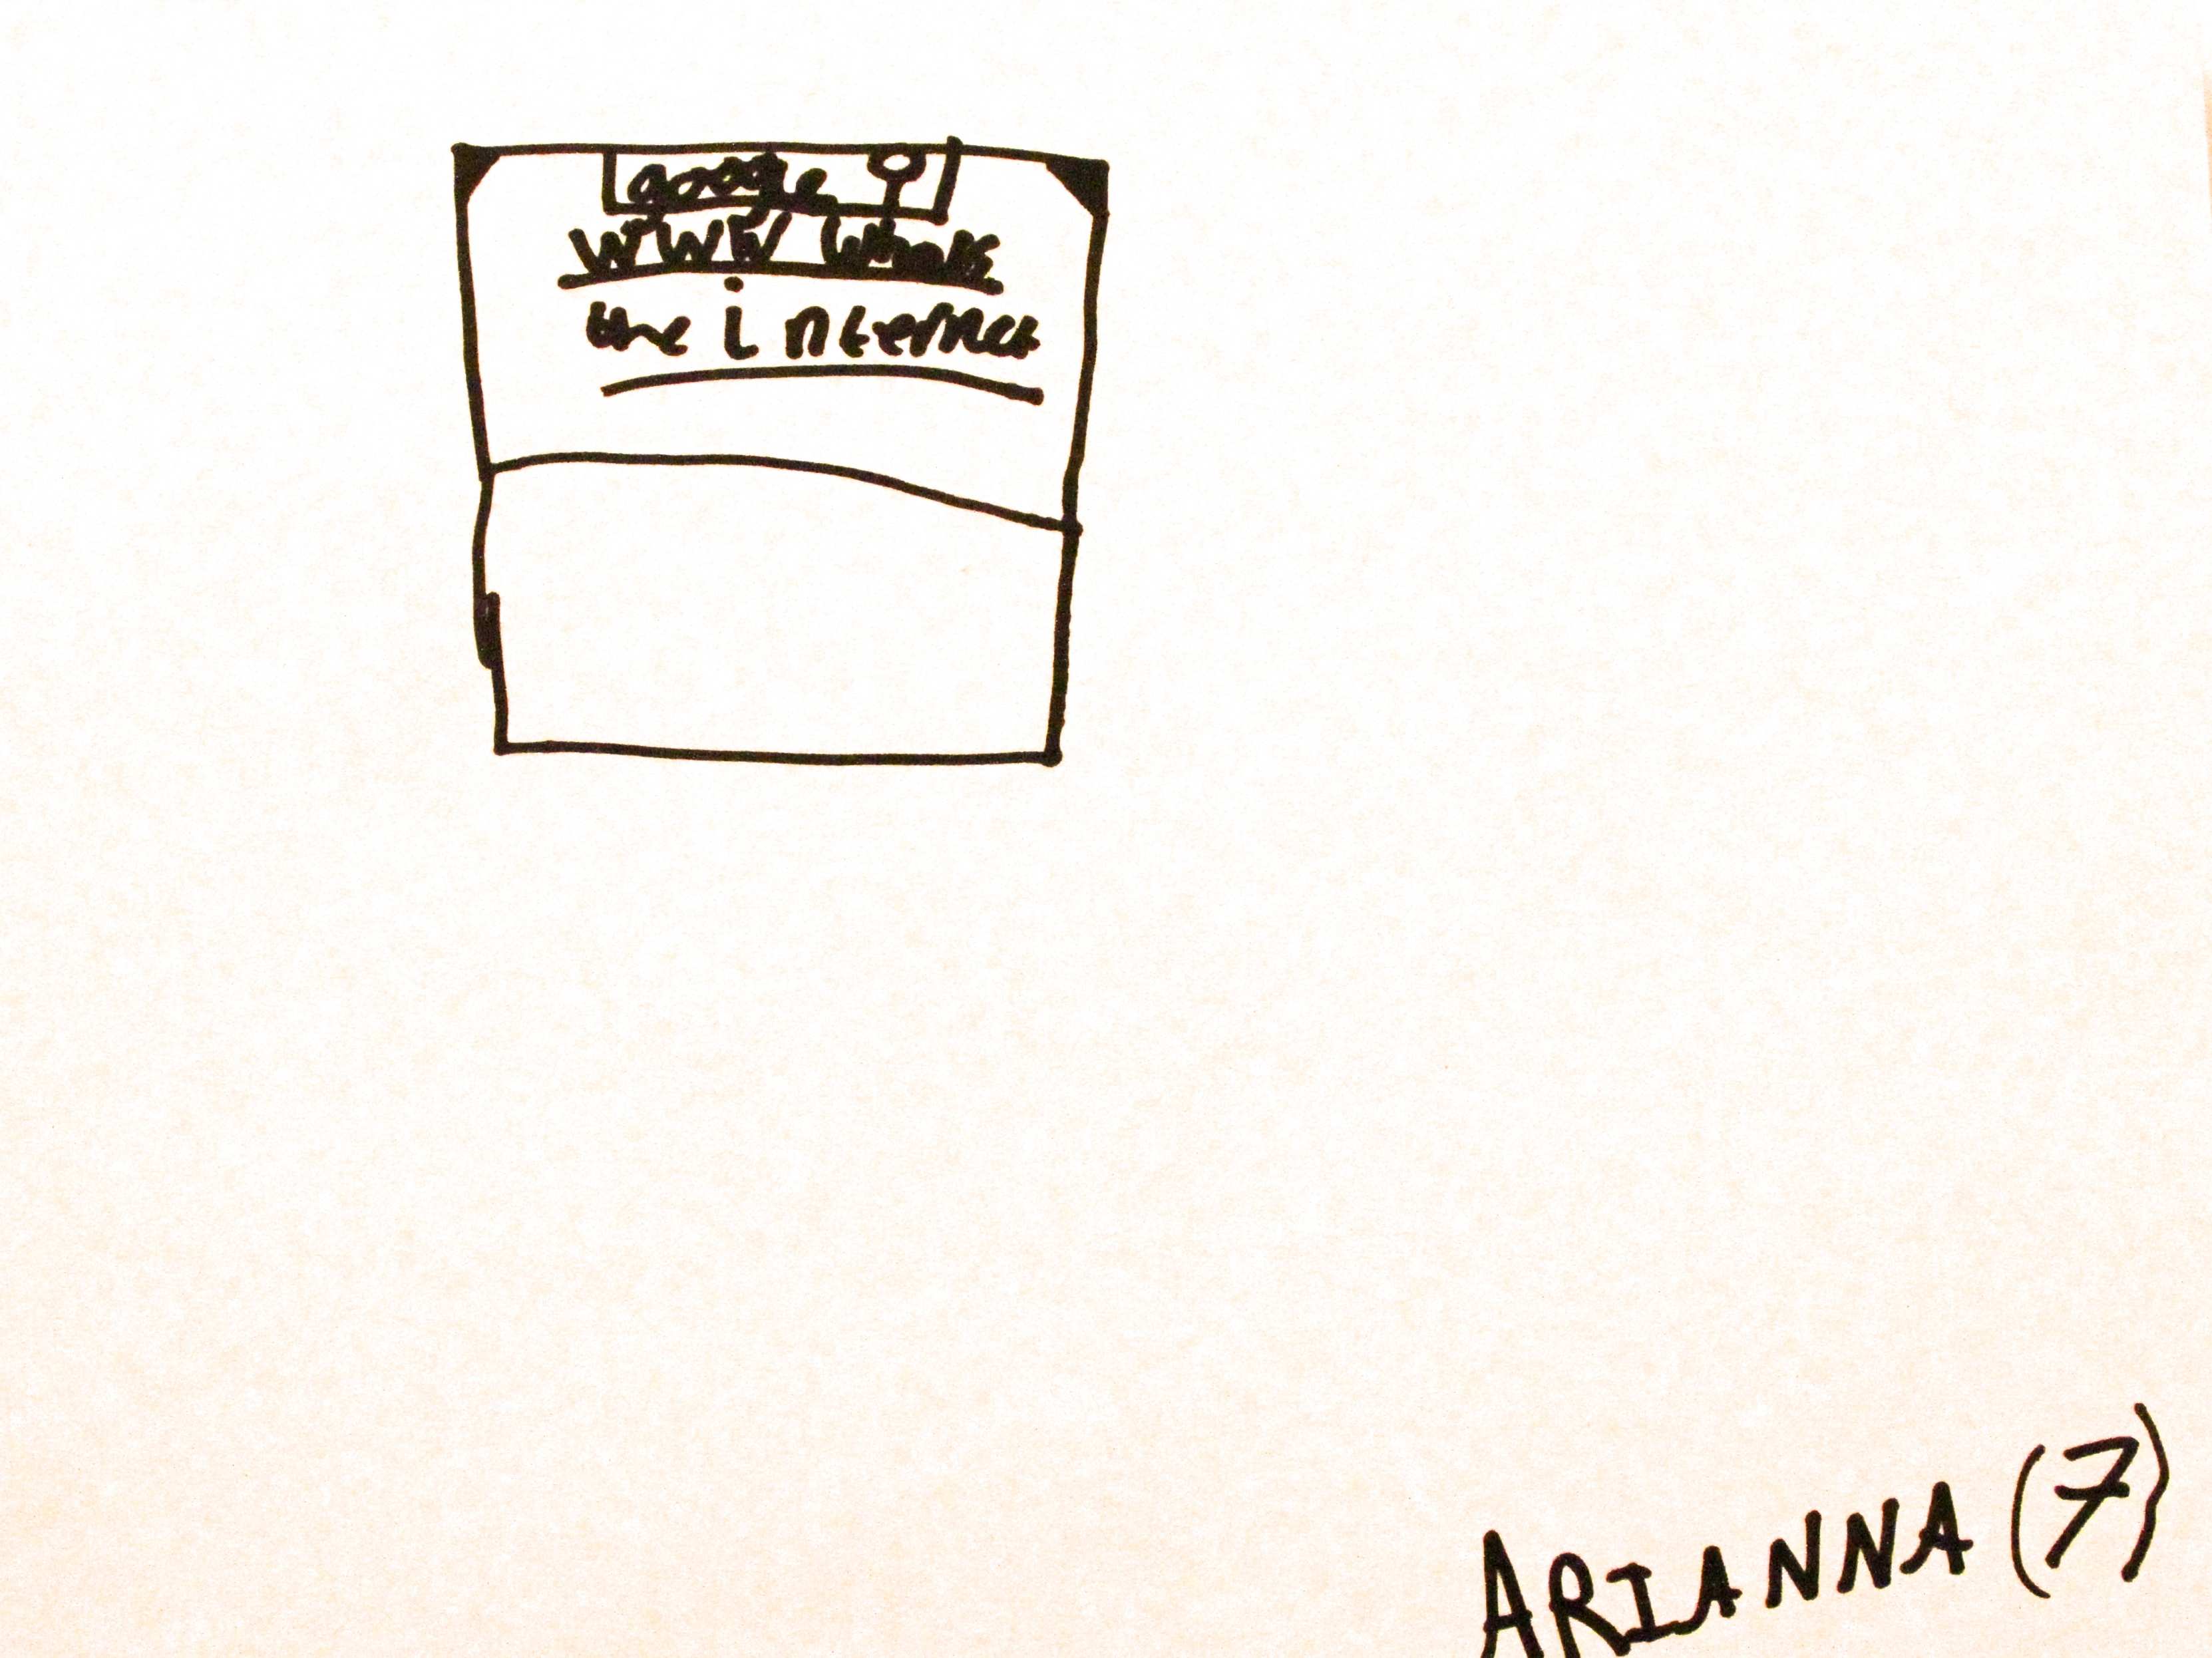 google
www whats
the internet
ARIANNA (7)